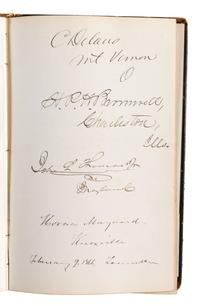 C Delano
Mt Vernon
O
H. P. H. Bromwell,
Charleston,
Ills.
John L Thomas Jr
Horace Maynard
Knoxville
February 9. 1866 Tennessee